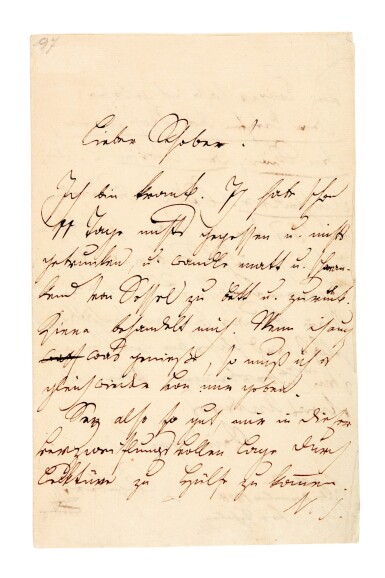 97
Lieber Schober!
Ich bin krank. Ich habe schon
11 Tage nichts gegessen u. nichts
getrunken u. wandle matt u. schwan-
kend von Sessel zu Bett u. zurück.
Rinna behandelt mich. Wenn ich auch
was genieße, so muß ich es
gleich wieder von mir geben.
Sey also so gut, mir in dieser
verzweiflungsvollen Lage durch
Lecktüre zu Hülfe zu kommen.